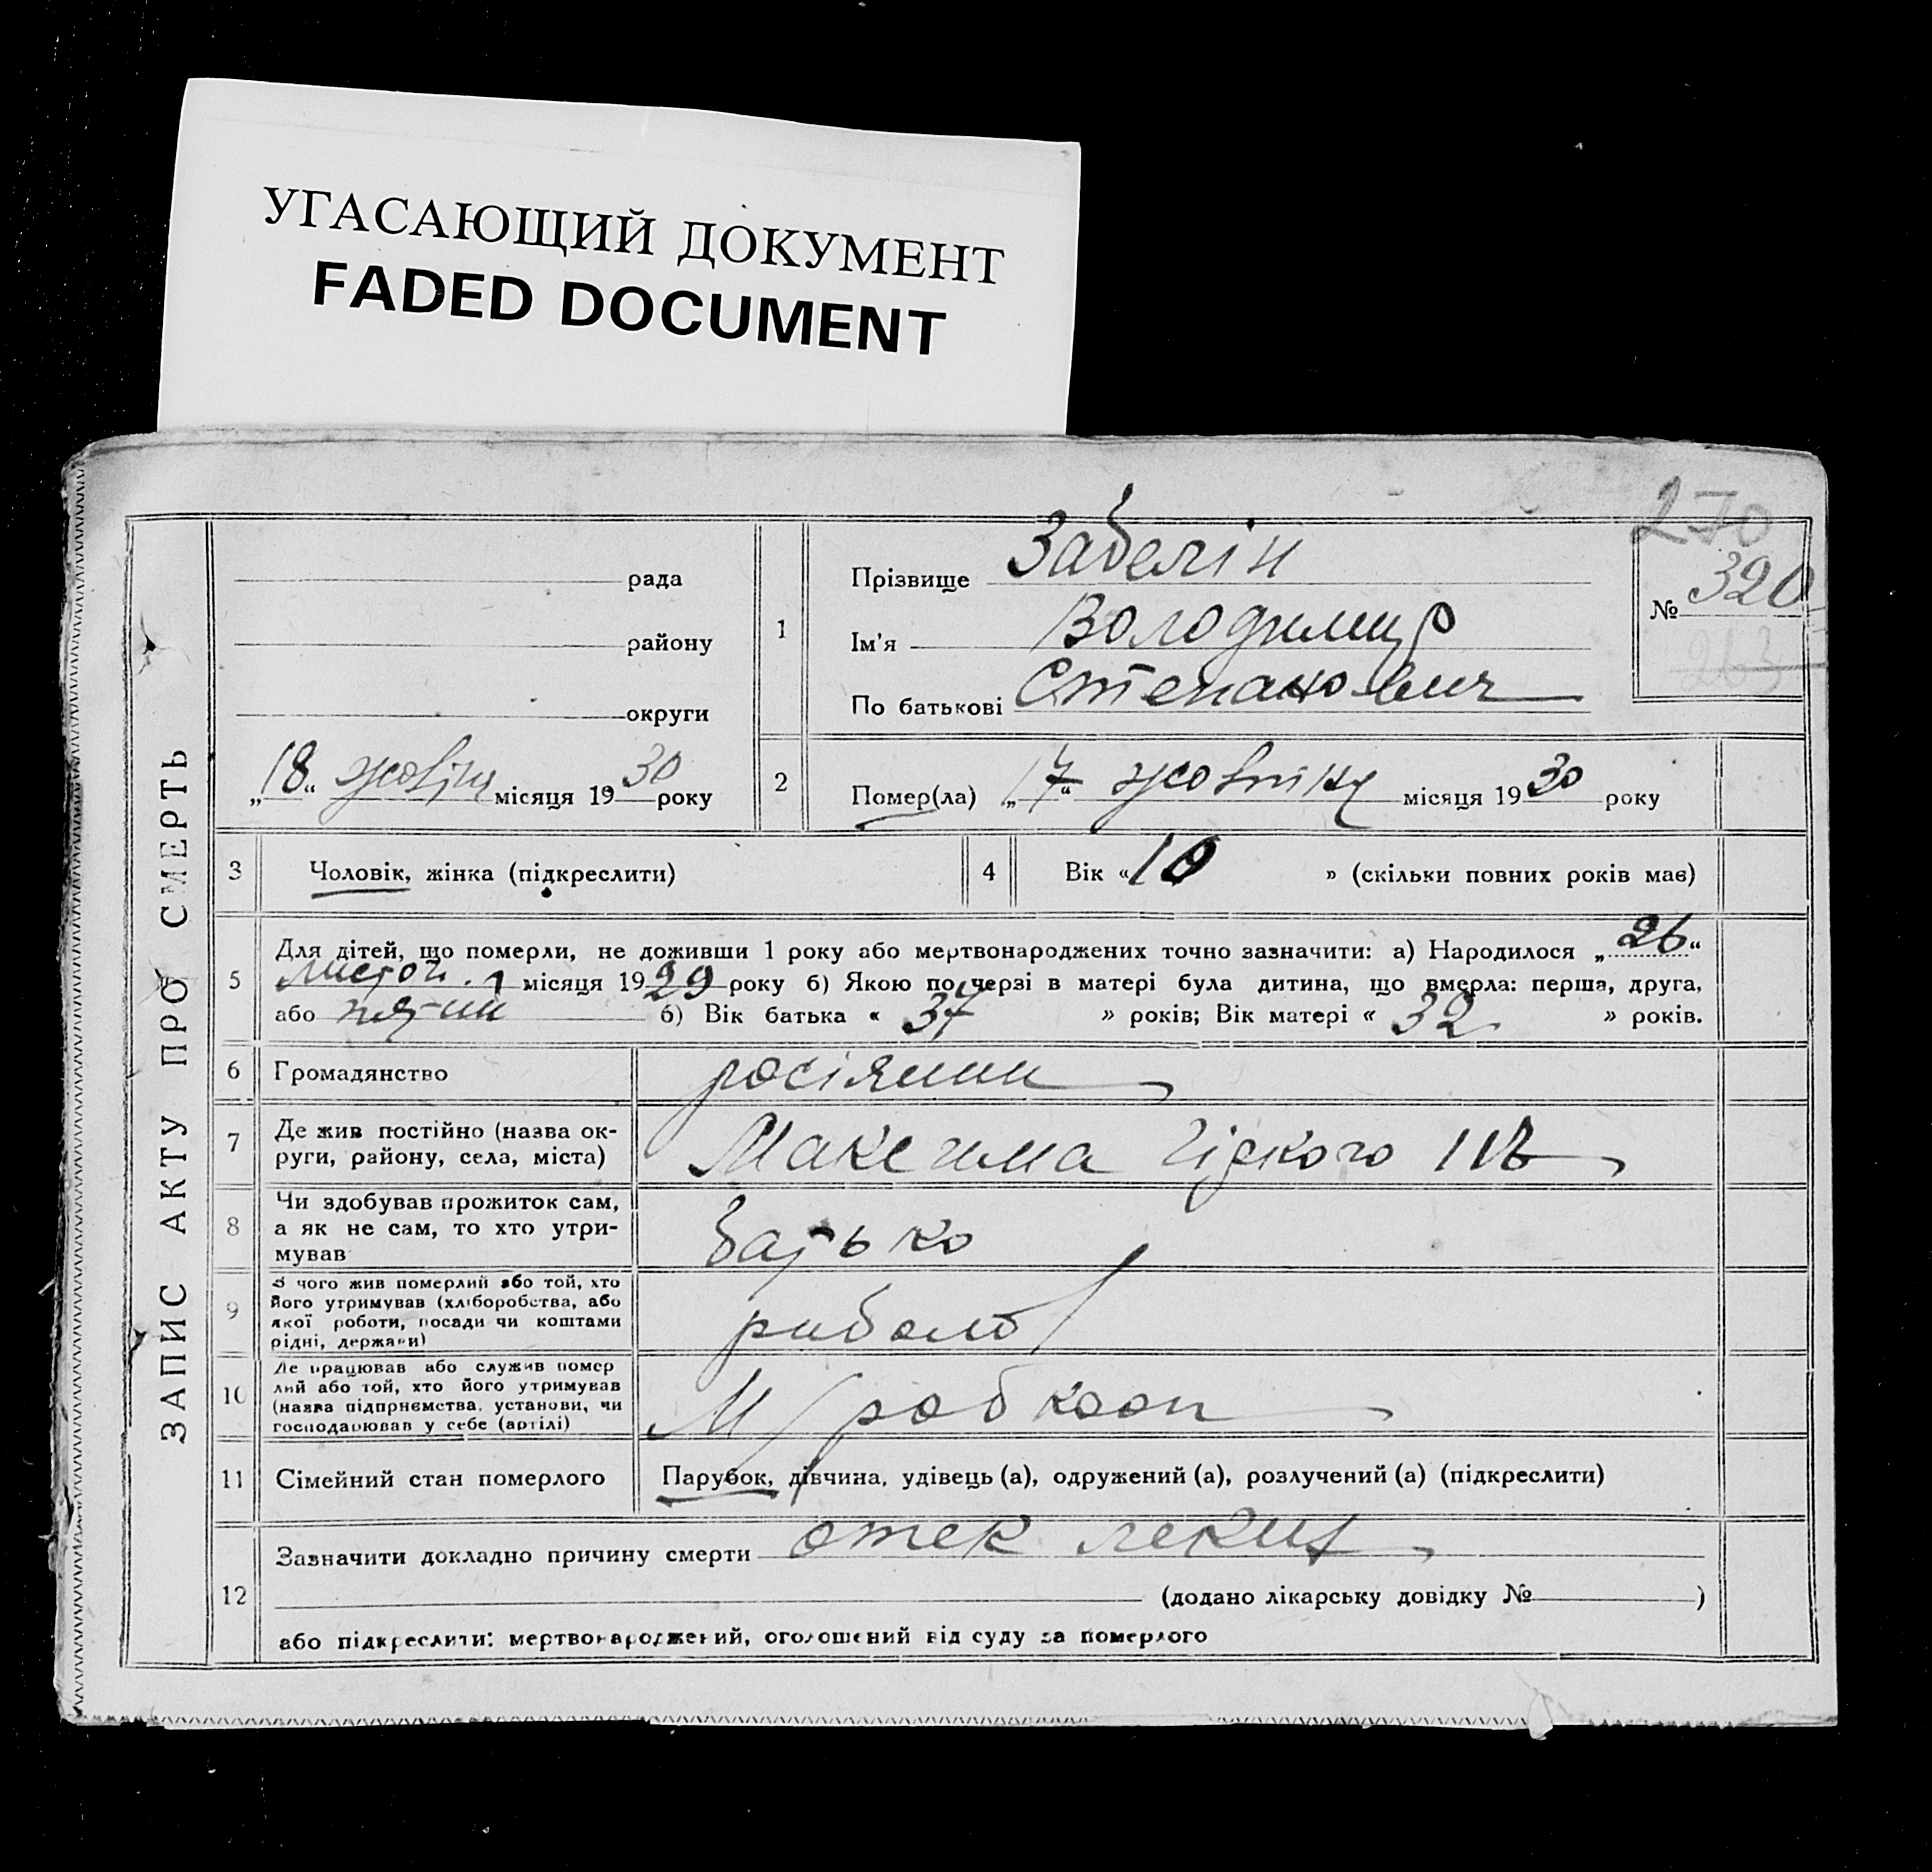 УГАСАЮЩИЙ ДОКУМЕНТ
FADED DOCUMENT
270
ЗАПИС АКТУ ПРО СМЕРТЬ
рада
району
округи
„18“ місяця 1930 року
1
Прізвище Забелін
Ім'я Володимир
По батькові Степанович
№ 320
263
2
Помер(ла) „17“ жовтня місяця 1930 року
3
Чоловік, жінка (підкреслити)
4
Вік «10» (скільки повних років має)
5
Для дітей, що померли, не доживши 1 року або мертвонароджених точно зазначити: а) Народилося „26“
листоп. місяця 1929 року б) Якою по черзі в матері була дитина, що вмерла: перша, друга,
або б) Вік батька «37» років; Вік матері «32» років.
6
Громадянство росіянин
7
Де жив постійно (назва ок-
руги, району, села, міста)
Максима Гіркого
8
Чи здобував прожиток сам,
а як не сам, то хто утри-
мував
батько
9
З чого жив померлий або той, хто
його утримував (хліборобства, або
якої роботи, посади чи коштами
рідні, держави)
риболов
10
Де працював або служив помер
лий або той, хто його утримував
(назва підприємства, установи, чи
господарював у себе (артілі)
М/робкооп
11
Сімейний стан померлого
Парубок, дівчина, удівець (а), одружений (а), розлучений (а) (підкреслити)
12
Зазначити докладно причину смерти отек
(додано лікарську довідку № )
або підкреслити: мертвонароджений, оголошений від суду за померлого